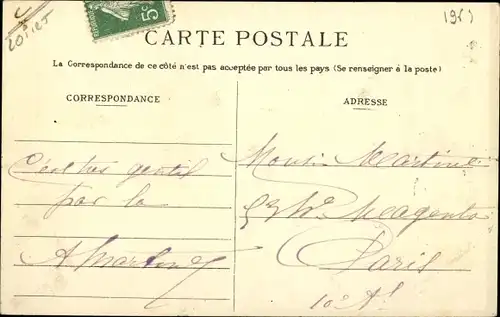 5c
CARTE POSTALE
La Correspondance de ce côté n'est pas acceptée par tous les pays (Se renseigner à la poste)
CORRESPONDANCE
ADRESSE
C'est très gentil
par la
A Martine
Monsi Martine
Bd Magenta
Paris
10e Ar